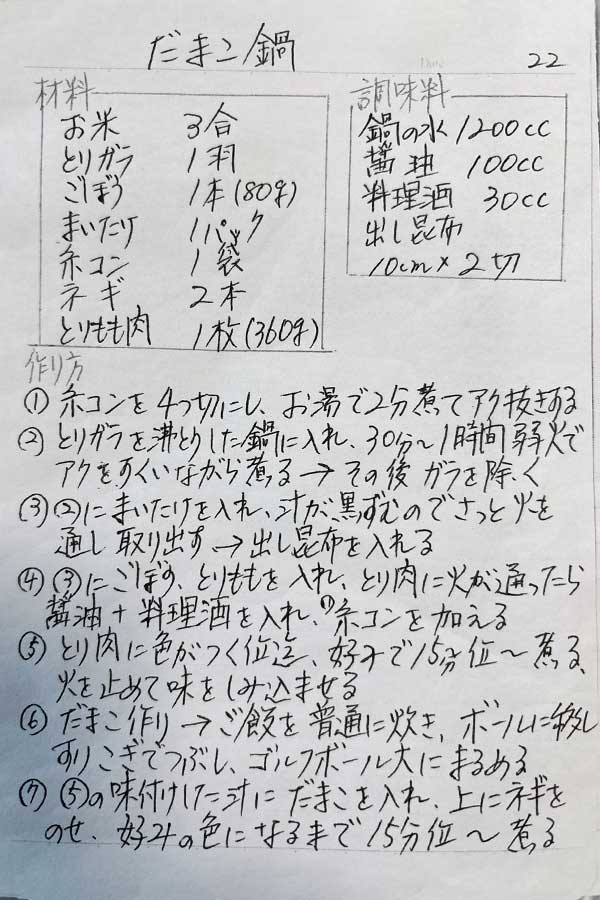 だまこ鍋
22
材料
お米 3合
とりガラ 1羽
ごぼう 1本(80g)
まいたけ 1パック
糸コン 1袋
ネギ 2本
とりもも肉 1枚(360g)
調味料
鍋の水1200cc
醤油 100cc
料理酒 30cc
出し昆布
10cm×2切
作り方
① 糸コンを4つ切にし、お湯で2分煮てアク抜きする
② とりガラを沸とうした鍋に入れ、30分〜1時間弱火で
アクをすくいながら煮る→その後ガラを除く
③ ②にまいたけを入れ、汁が黒ずむのでさっと火を
通し取り出す→出し昆布を入れる
④ ③にごぼう、とりももを入れ、とり肉に火が通ったら
醤油+料理酒を入れ、①糸コンを加える
⑤ とり肉に色がつく位迄、好みで15分位〜煮る、
火を止めて味をしみ込ませる
⑥ だまこ作り→ご飯を普通に炊き、ボールに移し
すりこぎでつぶし、ゴルフボール大にまるめる
⑦ ⑤の味付けした汁にだまこを入れ、上にネギを
のせ、好みの色になるまで15分位〜煮る